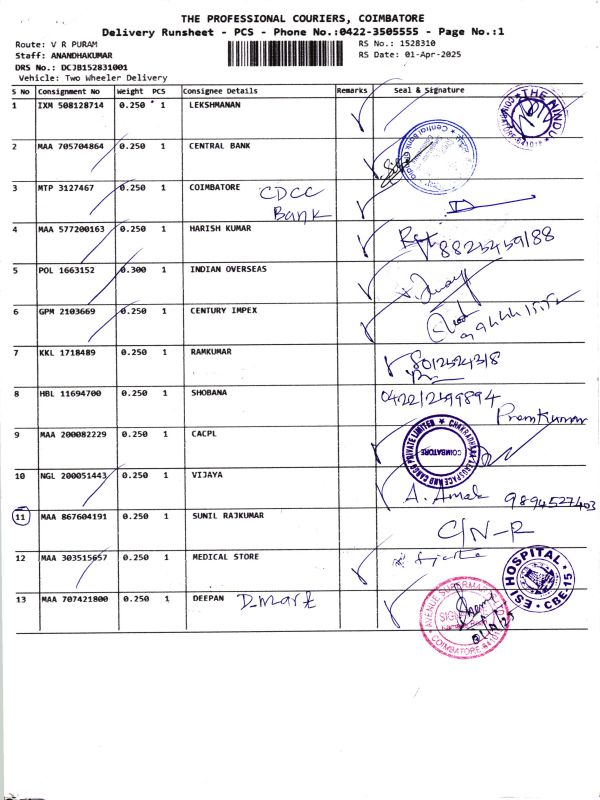 THE PROFESSIONAL COURIERS, COIMBATORE
Delivery Runsheet - PCS - Phone No.:0422-3505555 - Page No.:1
Route: V R PURAM RS No.: 1528310
Staff: ANANDHAKUMAR RS Date: 01-Apr-2025
DRS No.: DCJB152831001
Vehicle: Two Wheeler Delivery
S No Consignment No Weight PCS Consignee Details Remarks Seal & Signature
1 IXM 508128714 0.250 1 LEKSHMANAN THE HINDU
2 MAA 705704864 0.250 1 CENTRAL BANK
3 MTP 3127467 0.250 1 COIMBATORE CDCC
Bank
4 MAA 577200163 0.250 1 HARISH KUMAR
5 POL 1663152 0.300 1 INDIAN OVERSEAS
6 GPM 2103669 0.250 1 CENTURY IMPEX
7 KKL 1718489 0.250 1 RAMKUMAR
8 HBL 11694700 0.250 1 SHOBANA 0422/2499894
Premkumar
9 MAA 200082229 0.250 1 CACPL COIMBATORE
10 NGL 200051443 0.250 1 VIJAYA
9894527403
11 MAA 867604191 0.250 1 SUNIL RAJKUMAR C/N-R
12 MAA 303515657 0.250 1 MEDICAL STORE ESI HOSPITAL CBE-15
13 MAA 707421800 0.250 1 DEEPAN D.mart